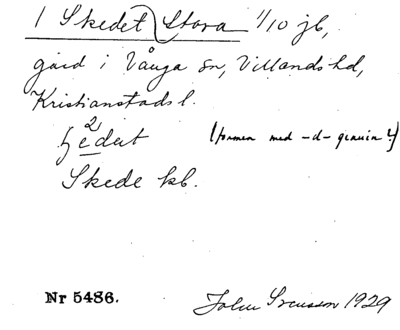 1 Skedet Stora 1/10 jb,
gård i Vånga sn, Villands hd,
Kristianstads l.
2
ɧedat (formen med -d- genuin?)
Skede kb.
Nr 5486. John Svensson 1929